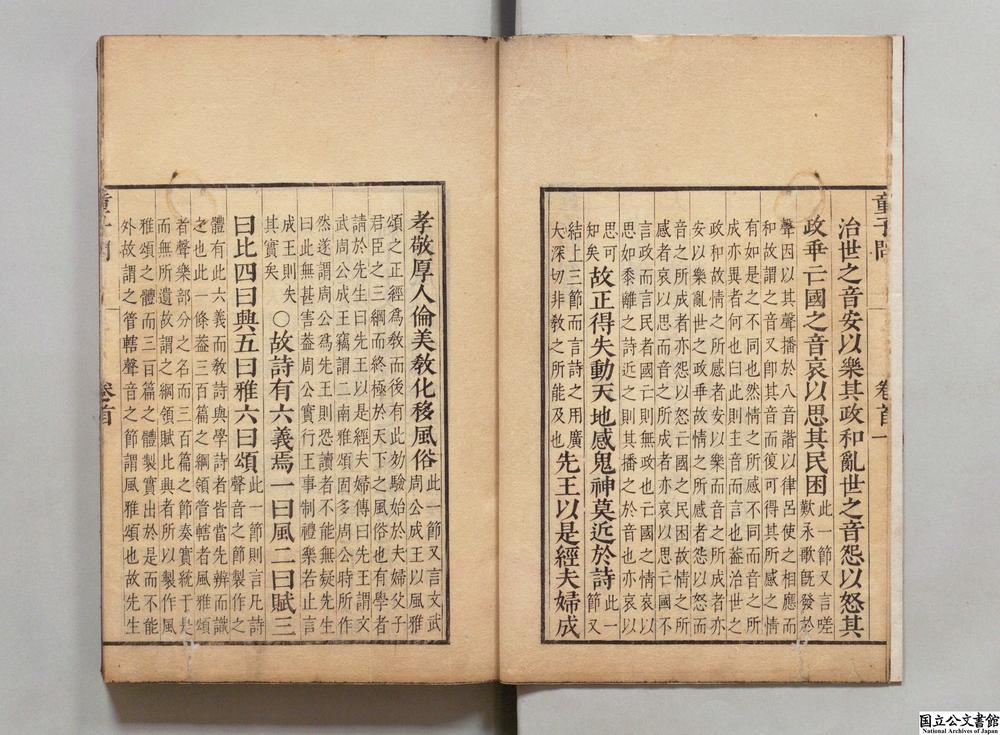 童子問 卷首 一
治世之音安以樂其政和亂世之音怨以怒其
政乖亡國之音哀以思其民困此一節又言嗟
歎永歌旣發於
聲因以其聲播於八音諧以律呂使之相應而
和故謂之音又卽其音而復可得其所感之情
有如是之不同也然情之所感不同而音之所
成亦異者何也曰此則主音而言也蓋治世之
政和故情之所感者安以樂而音之所成者亦
安以樂亂世之政乖故情之所感者怨以怒而
音之所成者亦怨以怒亡國之民困故情之所
感者哀以思而音之所成者亦哀以思亡國不
言政而言民者國亡則無政也亡國之情哀以
思如黍離之詩近之則其播之於音也亦哀以
思可
知矣故正得失動天地感鬼神莫近於詩此一
節又
結上三節而言詩之用廣
大深切非敎之所能及也先王以是經夫婦成
孝敬厚人倫美敎化移風俗此一節又言文武
周公成王以風雅
頌之正經爲敎而後有此効驗始於夫婦父子
君臣之三綱而終極於天下之風俗也有學者
請於先生曰先王以是經夫婦傳曰先王謂文
武周公成王竊謂二南雅頌固多周公時所作
然遂謂周公爲先王則恐讀者不能無疑先生
曰此無甚害蓋周公實行王事制禮樂若止言
成王則失
其實矣○故詩有六義焉一曰風二曰賦三
曰比四曰興五曰雅六曰頌此一節則言凡詩
聲音之節製作之
體有此六義而敎詩與學詩者皆當先辨而識
之也此一條蓋三百篇之綱領管轄者風雅頌
者聲樂部分之名而三百篇之節奏實統于是
而無所遺故謂之綱領賦比興者所以製作風
雅頌之體而三百篇之體製實出於是而不能
外故謂之管轄聲音之節謂風雅頌也故先生
童子問 卷首
国立公文書館
National Archives of Japan